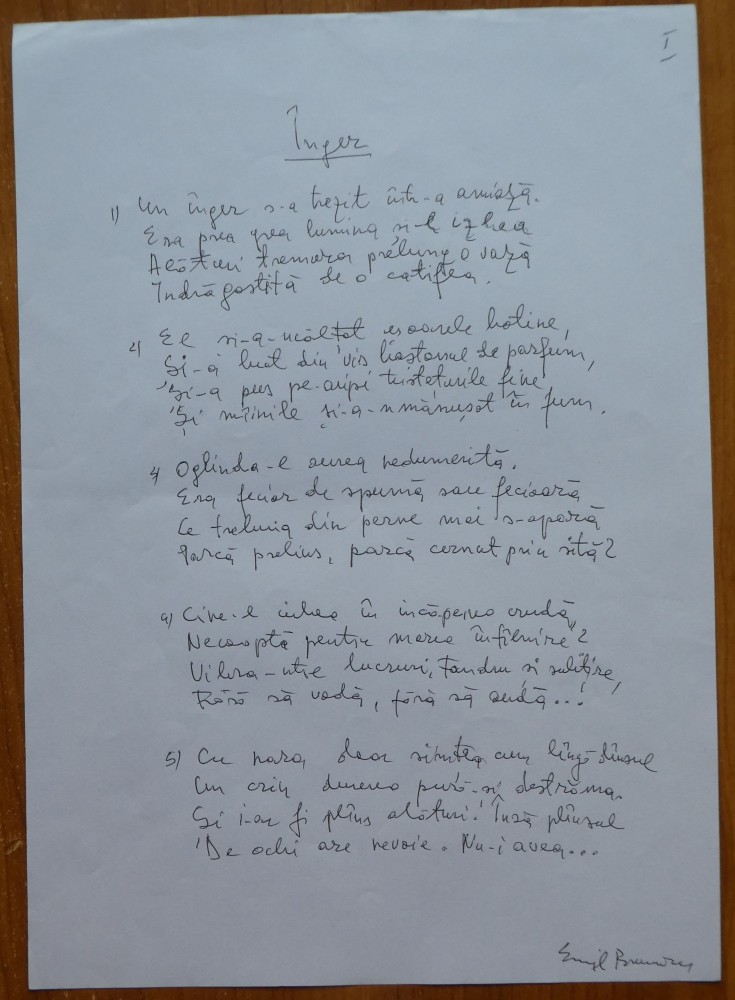 I
Înger
1) Un înger s-a trezit într-a amiază.
Era prea grea lumina și-l izbea
Alături tremura prelung o vază
Îndrăgostită de o catifea.
2) El și-a-ncălțat ușoarele botine,
Și-a luat din vis bastonul de parfum,
Și-a pus pe-aripi tristețurile fine
Și mîinile și-a-nmănușat în fum.
Oglinda-l nedumerită.
Era fecior de spumă sau fecioară
Ce trebuia din perne mai s-apară
Parcă prelins, parcă cernut prin sită?
4) Cine-l iubea în încăperea crudă,
Necoaptă pentru marea înfiorire?
Vibra-ntre lucruri, tandru și subțire,
Fără să vadă, fără să audă...!
5) Cu nara, doar simțea cum lîngă dînsul
Un crin durerea pură-și destrăma.
Și i-ar fi plîns alături! Însă plînsul
De ochi are nevoie. Nu-i avea...
Emil Brumaru